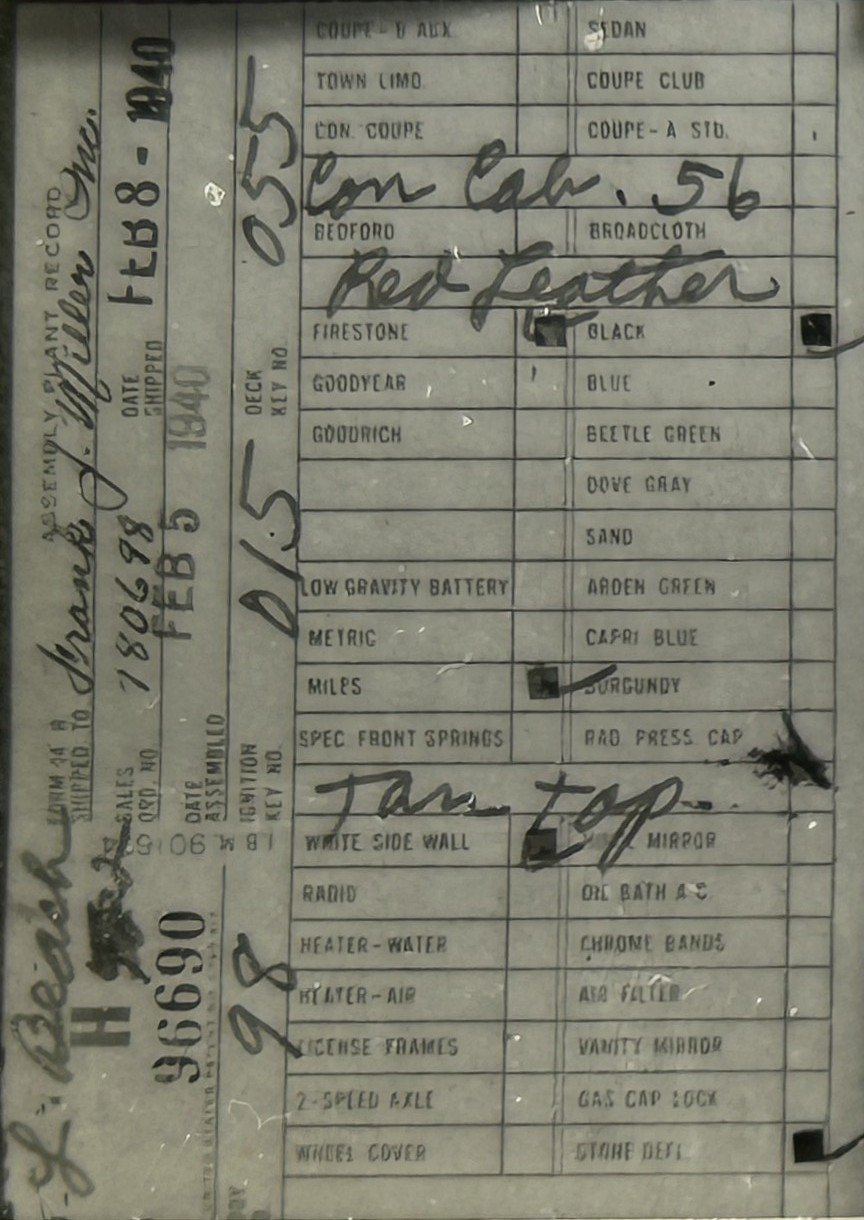 L. Beach
FORM 44 A ASSEMBLY PLANT RECORD
SHIPPED TO Frank J. Miller Inc.
H
SALES ORD. NO. 780698 DATE SHIPPED FEB 8 - 1940
96690
DATE ASSEMBLED FEB 5 1940
98 IGNITION KEY NO. 015 DECK KEY NO. 055
COUPE - B AUX SEDAN
TOWN LIMO. COUPE CLUB
CON. COUPE COUPE - A STD.
Con Cab. 56
BEDFORD BROADCLOTH
Red Leather
FIRESTONE BLACK
GOODYEAR BLUE
GOODRICH BEETLE GREEN
DOVE GRAY
SAND
LOW GRAVITY BATTERY ARDEN GREEN
METRIC CAPRI BLUE
MILES BURGUNDY
SPEC FRONT SPRINGS RAD PRESS CAP
Tan top.
WHITE SIDE WALL MIRROR
RADIO OIL BATH A C
HEATER - WATER CHROME BANDS
HEATER - AIR AIR FILTER
LICENSE FRAMES VANITY MIRROR
2 - SPEED AXLE GAS CAP LOCK
WHEEL COVER STONE DEFL.